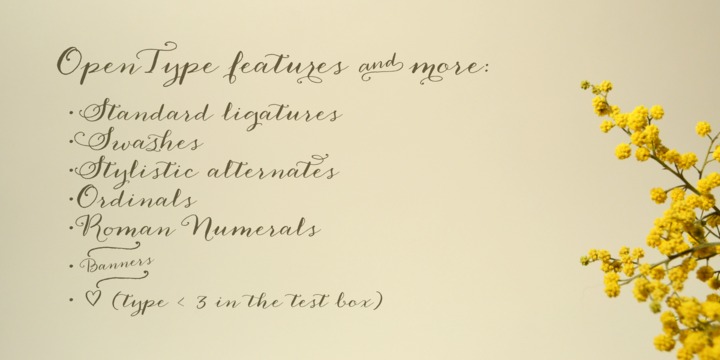 OpenType features and more:
• Standard ligatures
• Swashes
• Stylistic alternates
• Ordinals
• Roman Numerals
• Banners
• ♡ (type < 3 in the test box)